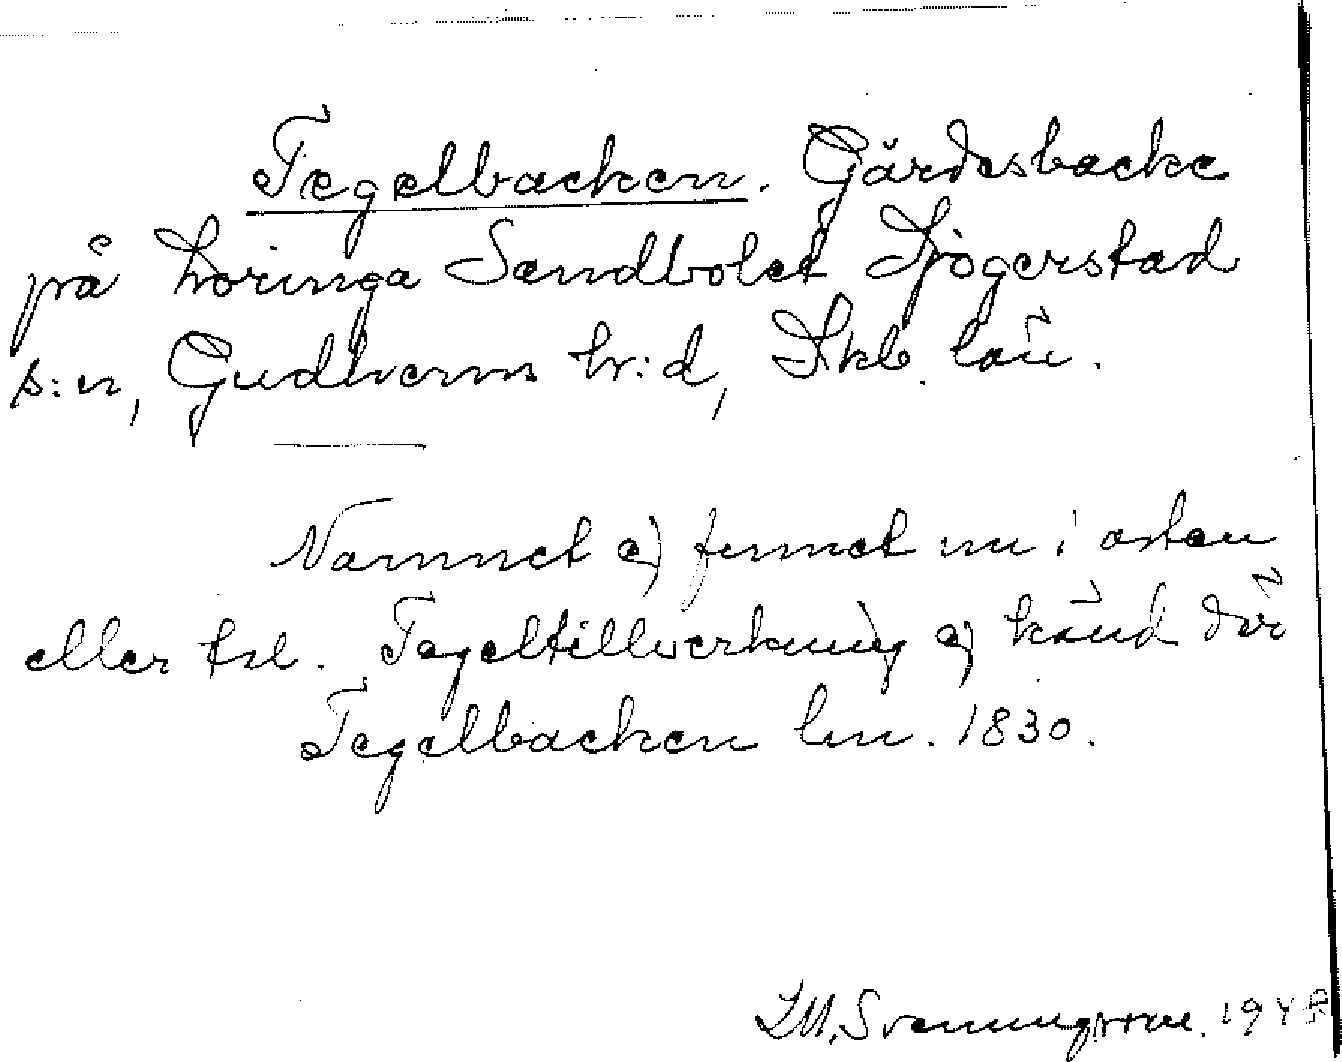 Tegelbacken. Gärdesbacke
på Loringa Sandbolet Sjogerstad
s:n, Gudhems hr:d, Skb. län.
Namnet ej funnet nu i orten
eller tal. Tegeltillverkning ej känd där
Tegelbacken lm. 1830.
Svenungsson. 194